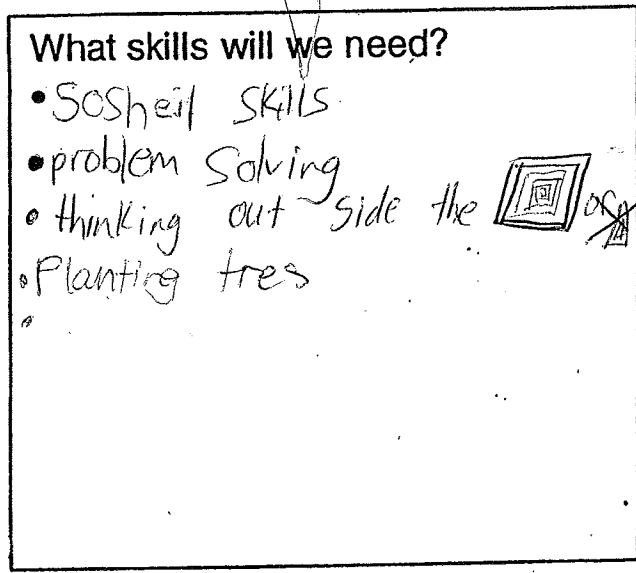 What skills will we need?
• Sosheil skills
• problem Solving
• thinking out side the or
• Planting tres
•